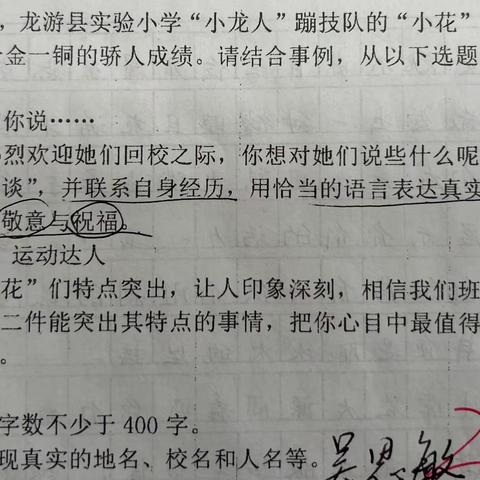 ，龙游县实验小学“小龙人”蹦技队的“小花”
金一铜的骄人成绩。请结合事例，从以下选题
你说……
烈欢迎她们回校之际，你想对她们说些什么呢
谈”，并联系自身经历，用恰当的语言表达真实
敬意与祝福。
运动达人
花”们特点突出，让人印象深刻，相信我们班
二件能突出其特点的事情，把你心目中最值得
。
字数不少于 400 字。
现真实的地名、校名和人名等。
吴思敏